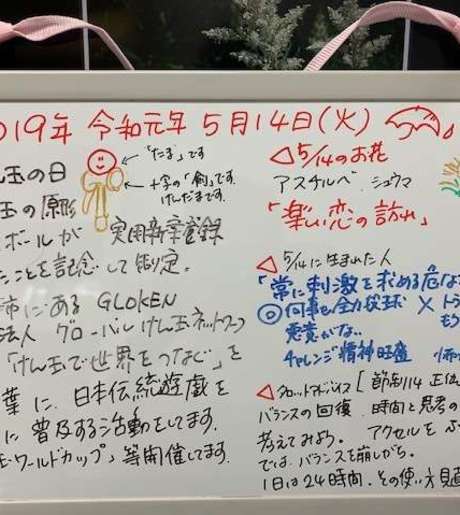 019年 令和元年 5月14日(火)
ん玉の日
←「たま」です
玉の原形
←十字の「剣」です。
けんだまです。
ボールが 実用新案登録
たことを記念して制定。
にある GLOKEN
法人 グローバルけん玉ネットワーク
「けん玉で世界をつなぐ」を
葉に、日本伝統遊戯を
に普及する活動をしてます。
玉ワールドカップ」等開催してます。
◁5/14のお花
アスチルベ、シュウマ
「楽しい恋の訪れ」
◁5/14に生まれた人
「常に刺激を求める危な
◎何事も全力投球 × トラ
悪意がない もう
チャレンジ精神旺盛
◁タロットアドバイス[節制14正位
バランスの回復、時間と思考の
考えてみよう。 アクセルをふ
では、バランスを崩しがち。
1日は24時間、その使い方見直